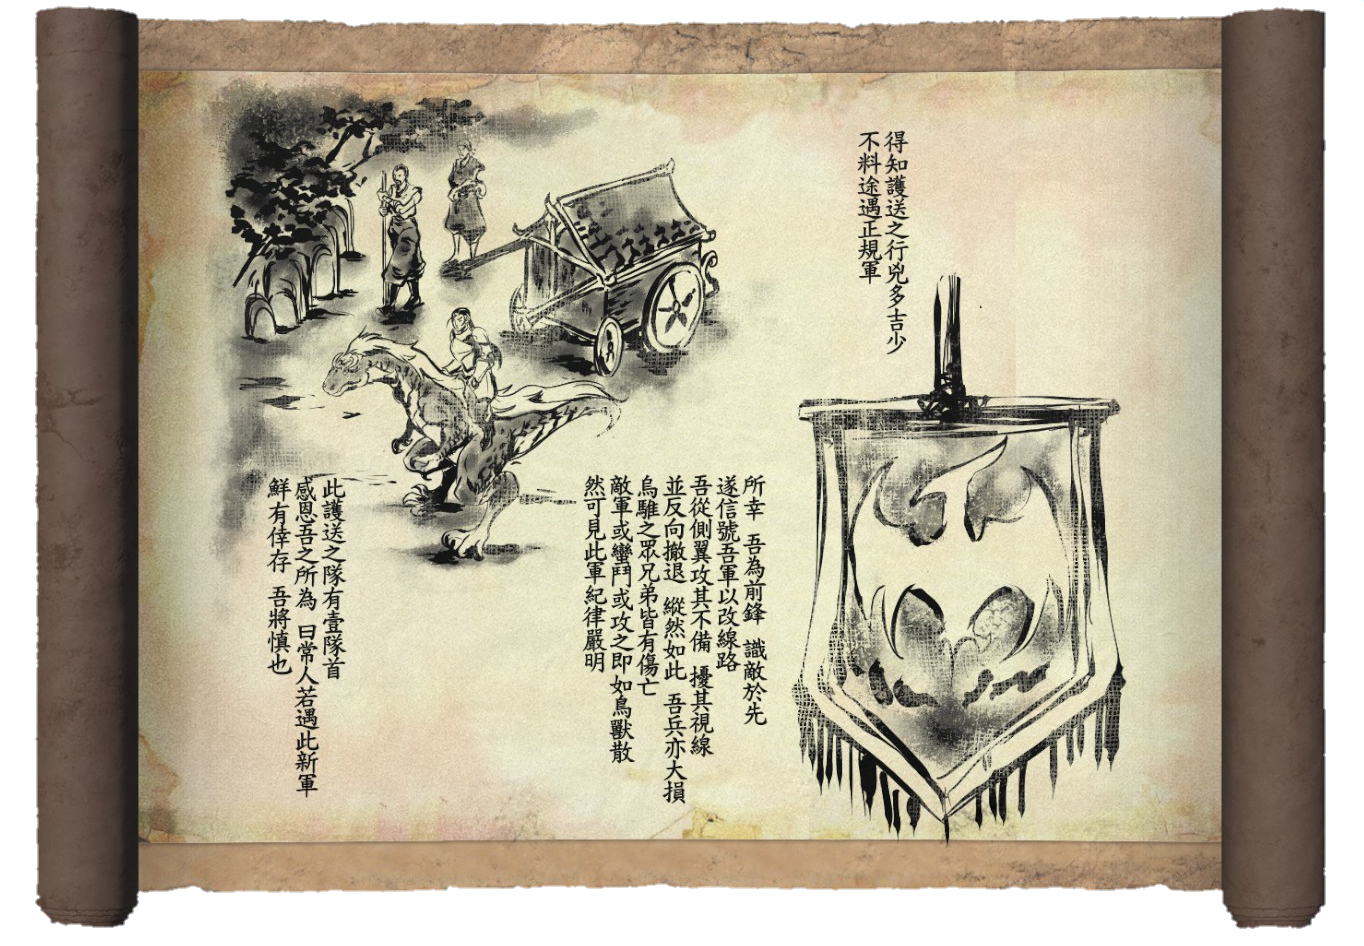 得知護送之行兇多吉少
不料途遇正規軍
所幸 吾為前鋒 識敵於先
遂信號吾軍以改線路
吾從側翼攻其不備 擾其視線
並反向撤退 縱然如此 吾兵亦大損
烏騅之眾兄弟皆有傷亡
敵軍或蠻鬥或攻之即如鳥獸散
然可見此軍紀律嚴明
此護送之隊有壹隊首
感恩吾之所為 曰常人若遇此新軍
鮮有倖存 吾將慎也